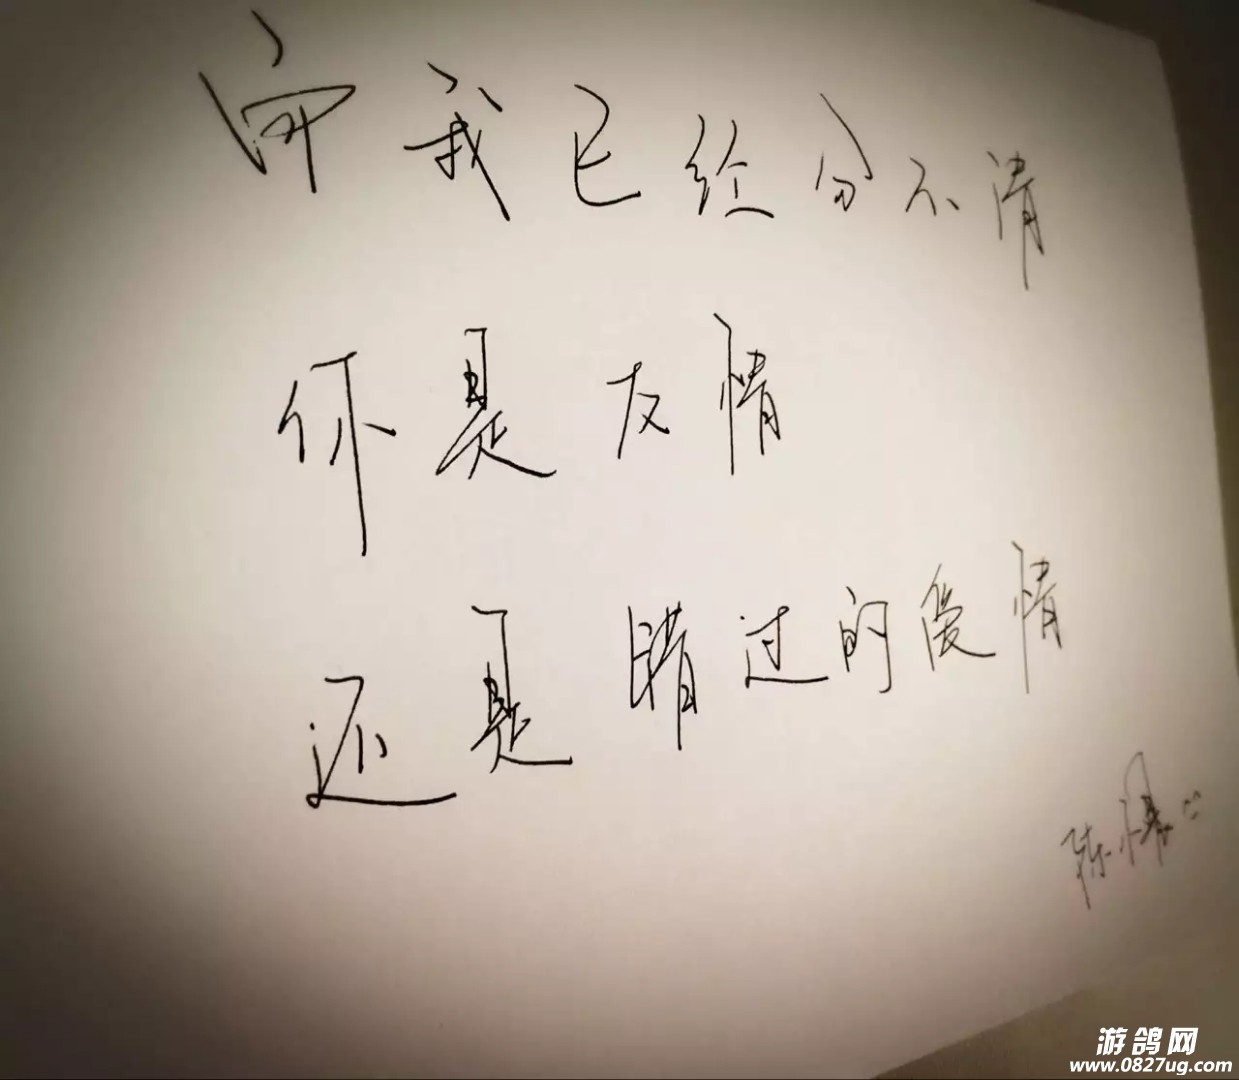 而我已经分不清
你是友情
还是睛过的爱情
游鸽网
www.0827ug.com